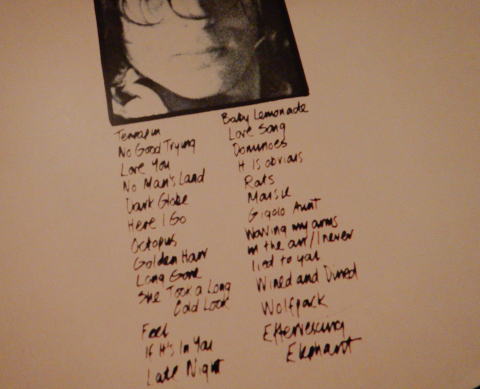 Terrapin
No Good Trying
Love You
No Man's Land
Dark Globe
Here I Go
Octopus
Golden Hair
Long Gone
She Took a Long
Cold Look
Feel
If It's In You
Late Night
Baby Lemonade
Love Song
Dominoes
It Is obvious
Rats
Maisie
Gigolo Aunt
Waving my arms
in the air/I never
lied to you
Wined and Dined
Wolfpack
Effervescing
Elephant